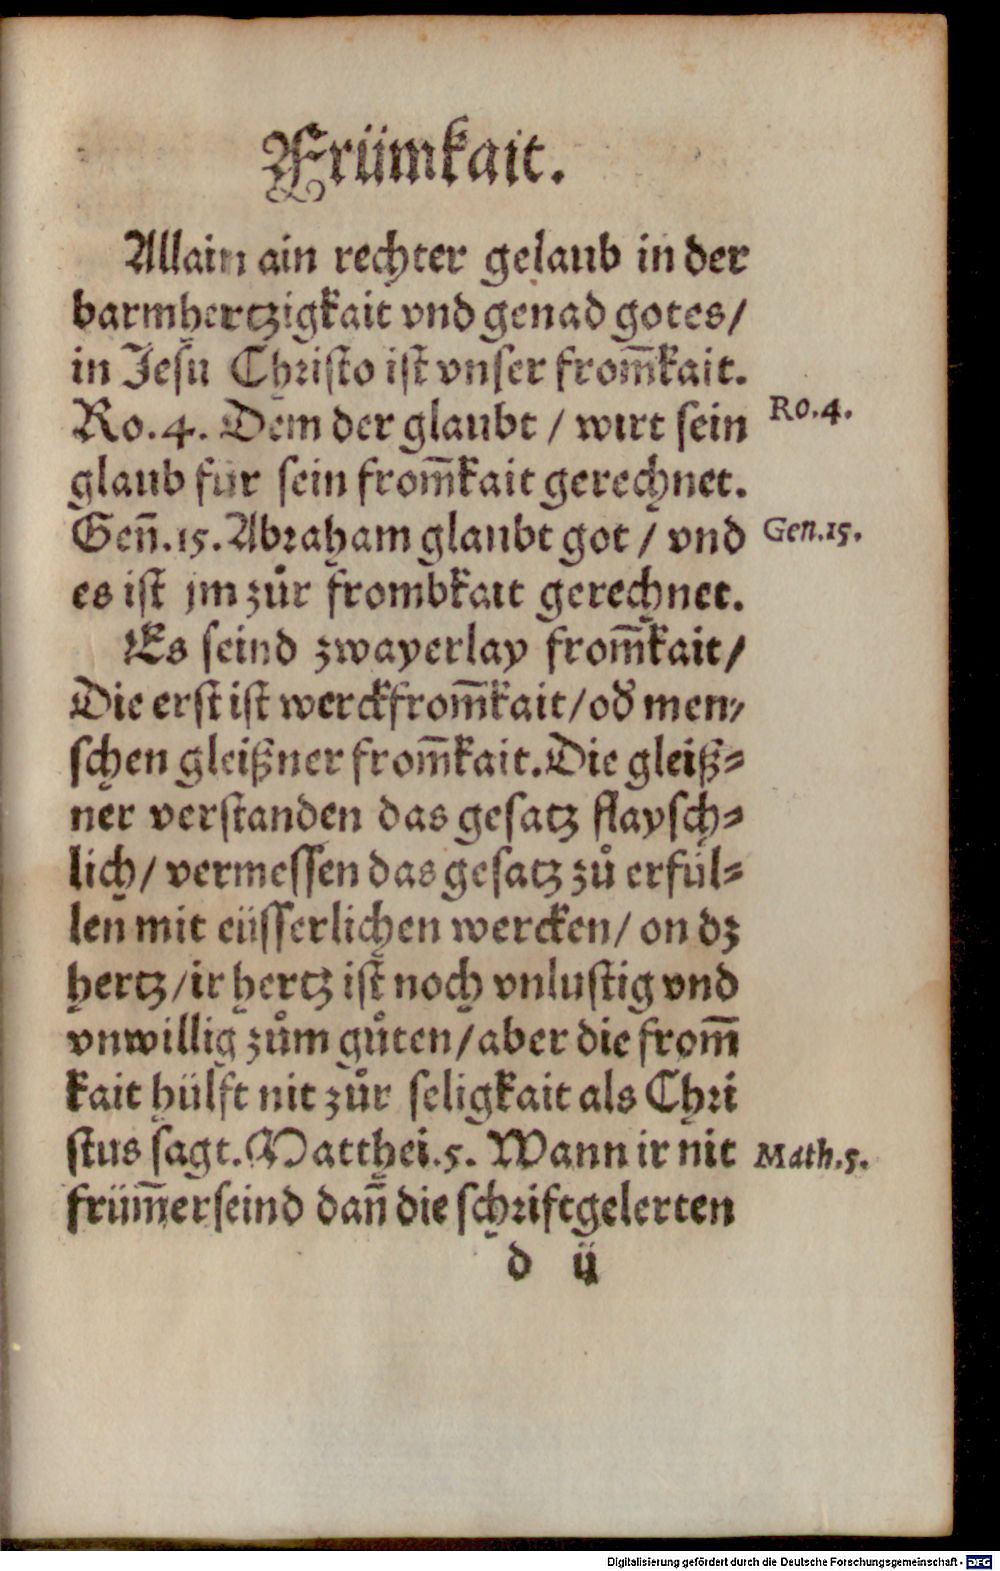 Frümkait.
Allain ain rechter gelaub in der
barmhertzigkait vnd genad gotes/
in Jesu Christo ist vnser from̄kait.
Ro.4. Dem der glaubt / wirt sein
Ro.4.
glaub für sein from̄kait gerechnet.
Geñ.15. Abraham glaubt got / vnd
Gen.15.
es ist jm zůr frombkait gerechnet.
Es seind zwayerlay from̄kait/
Die erst ist werckfrom̄kait/od̕ men⸗
schen gleißner from̄kait. Die gleiß⸗
ner verstanden das gesatz flaysch⸗
lich/ vermessen das gesatz zů erfül⸗
len mit eüsserlichen wercken/ on dz
hertz/ir hertz ist noch vnlustig vnd
vnwillig zům gůten/aber die from̄
kait hülft nit zůr seligkait als Chri
stus sagt. Matthei.5. Wann ir nit
Math.5.
früm̄er seind dañ die schriftgelerten
d ij
Digitalisierung gefördert durch die Deutsche Forschungsgemeinschaft - DFG